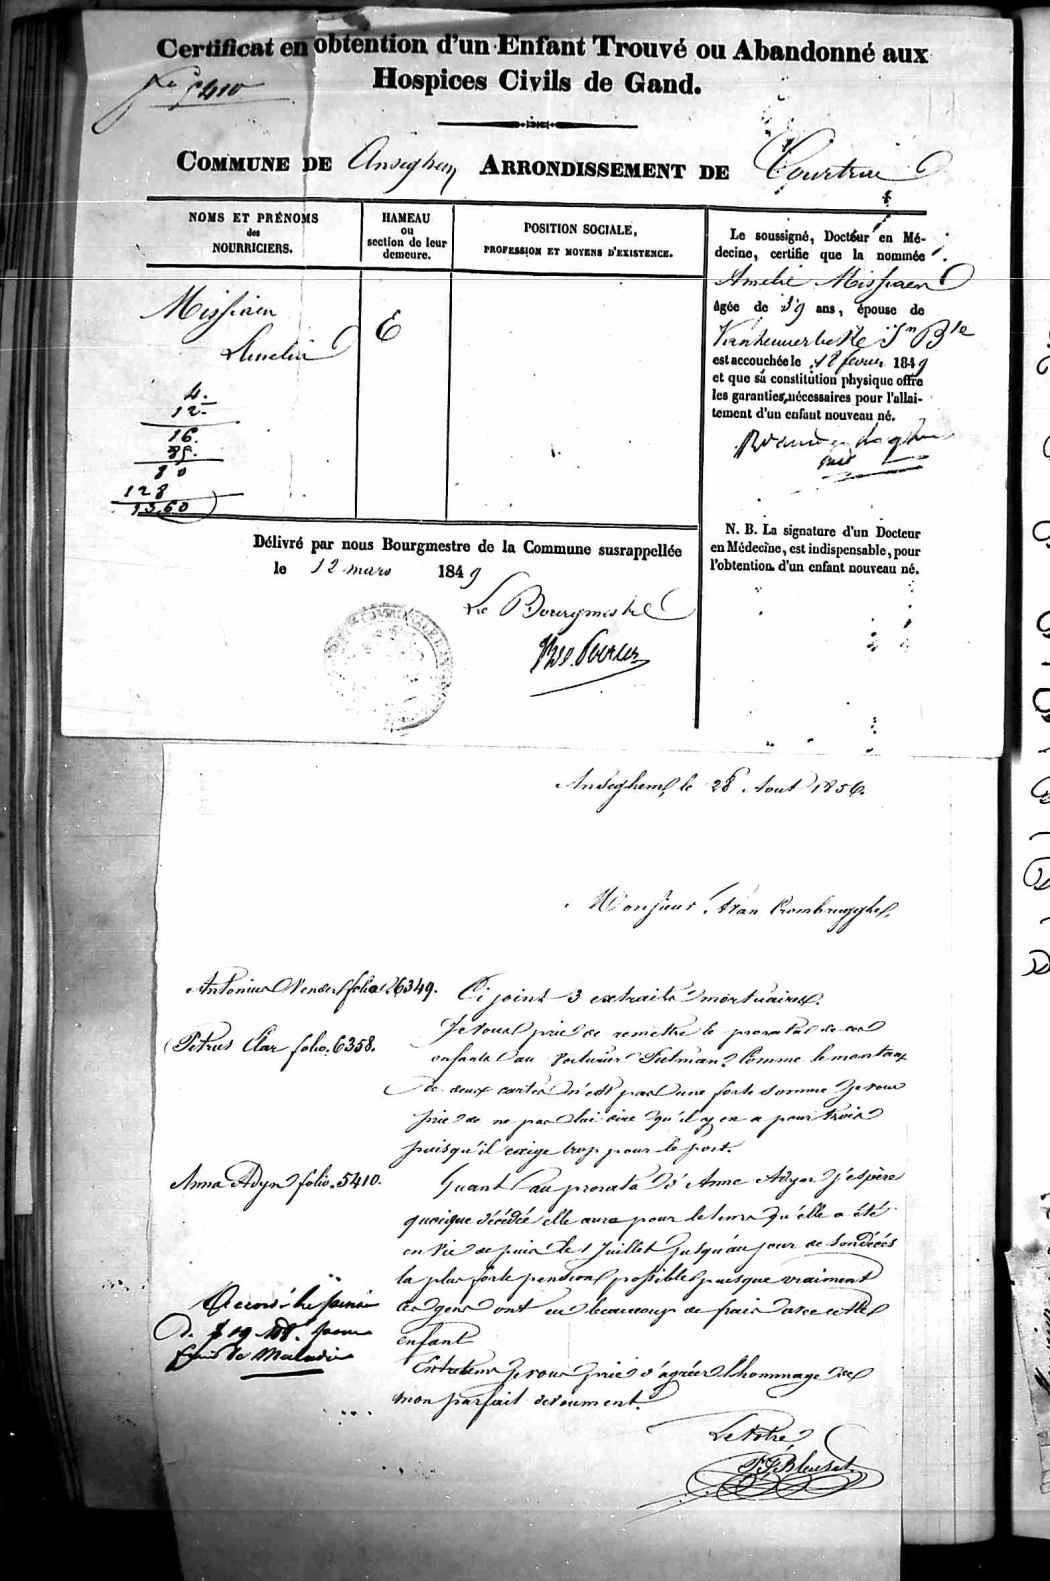 Certificat en obtention d'un Enfant Trouvé ou Abandonné aux
Hospices Civils de Gand.
N° 5410
COMMUNE DE Anseghem ARRONDISSEMENT DE Courtrai
NOMS ET PRÉNOMS
des
NOURRICIERS.
HAMEAU
ou
section de leur
demeure.
POSITION SOCIALE,
PROFESSION ET MOYENS D'EXISTENCE.
Missiaen
Amelia
E
4.
12.
16.
80
128
13.60
Le soussigné, Docteur en Mé-
decine, certifie que la nommée
Amelie Missiaen
âgée de 39 ans, épouse de
Jn Bte
est accouchée le 18 fevrier 1849
et que sa constitution physique offre
les garanties nécessaires pour l'allai-
tement d'un enfant nouveau né.
N. B. La signature d'un Docteur
en Médecine, est indispensable, pour
l'obtention d'un enfant nouveau né.
Délivré par nous Bourgmestre de la Commune susrappellée
le 12 mars 1849
Le Bourgmestre
Anseghem, le 28 Aout 1856
Monsieur Van Crombrugghe,
Antonius folio 26349.
Ci joint 3 extraits mortuaires.
Petrus Clar folio. 6358.
Je vous prie de remettre le prorata de ces
enfants au voiturier Putman. Comme le montant
de deux cartes n'est pas une forte somme je vous
prie de ne pas lui dire qu'il y en a pour trois
puisqu'il exige trop pour le port.
Anna Adyn folio. 5410.
Quant au prorata d'Anne Adyn j'espère
quoique décédée elle aura pour le tems qu'elle a été
en vie depuis le 1 Juillet jusqu'au jour de son décès
la plus forte pension possible puisque vraiment
ces gens ont eu beaucoup de frais avec cette
enfant
de Maladie
Entretems je vous prie d'agréer l'hommage de
mon parfait devoument.
Le Votre